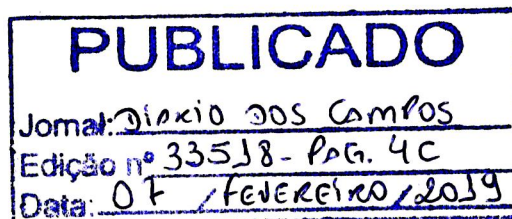 PUBLICADO
Jornal: DIÁRIO DOS CAMPOS
Edição nº 33518 - PAG. 4C
Data: 07 / FEVEREIRO / 2019